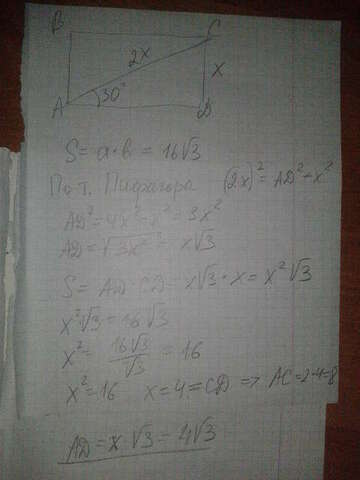 B C
2x
x
A 30° D
S = a·b = 16√3
По т. Пифагора (2x)² = AD² + x²
AD² = 4x² - x² = 3x²
AD = √3x² = x√3
S = AD·CD = x√3·x = x²√3
x²√3 = 16√3
x² = 16√3/√3 = 16
x² = 16 x = 4 = CD => AC = 2·4 = 8
AD = x·√3 = 4√3